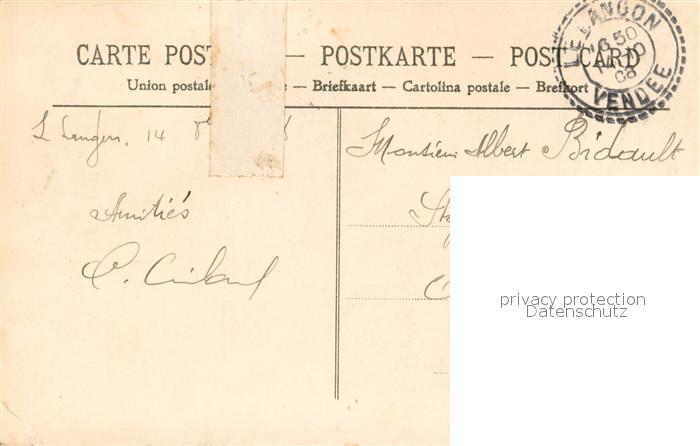 CARTE POST — POSTKARTE — POST CARD
Union postale — Briefkaart — Cartolina postale — Brefkort
LE LANGON
6 50
VENDÉE
Le Langon, 14
Amitiés
Monsieur Albert Bidault
privacy protection
Datenschutz